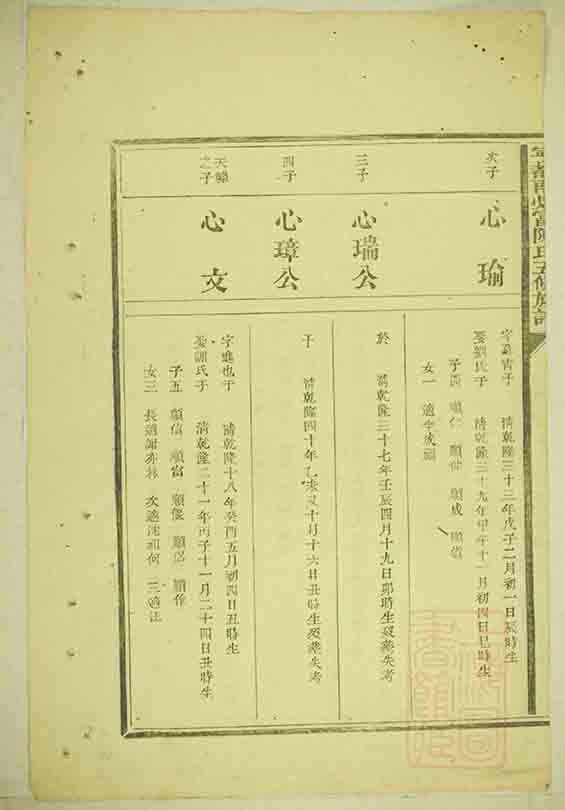 次子
心瑜
字
於
清乾隆三十三年戊子二月初一日辰時生
娶劉氏于
清乾隆三十九年甲午十一月初四日巳時生
子四 順仁 順仲 順成
女一 適李成
三子
心瑞公
於
清乾隆三十七年壬辰四月十九日卯時生歿葬失考
四子
心璋公
于
清乾隆四十年乙未又十月十六日丑時生歿葬失考
之子
心文
字進也于
清乾隆十八年癸酉五月初四日丑時生
娶謝氏于
清乾隆二十一年丙子十一月二十四日丑時生
子五 順信 順富 順俊 順倍 順作
女三 長適謝亦林 次適沈祖何 三適汪